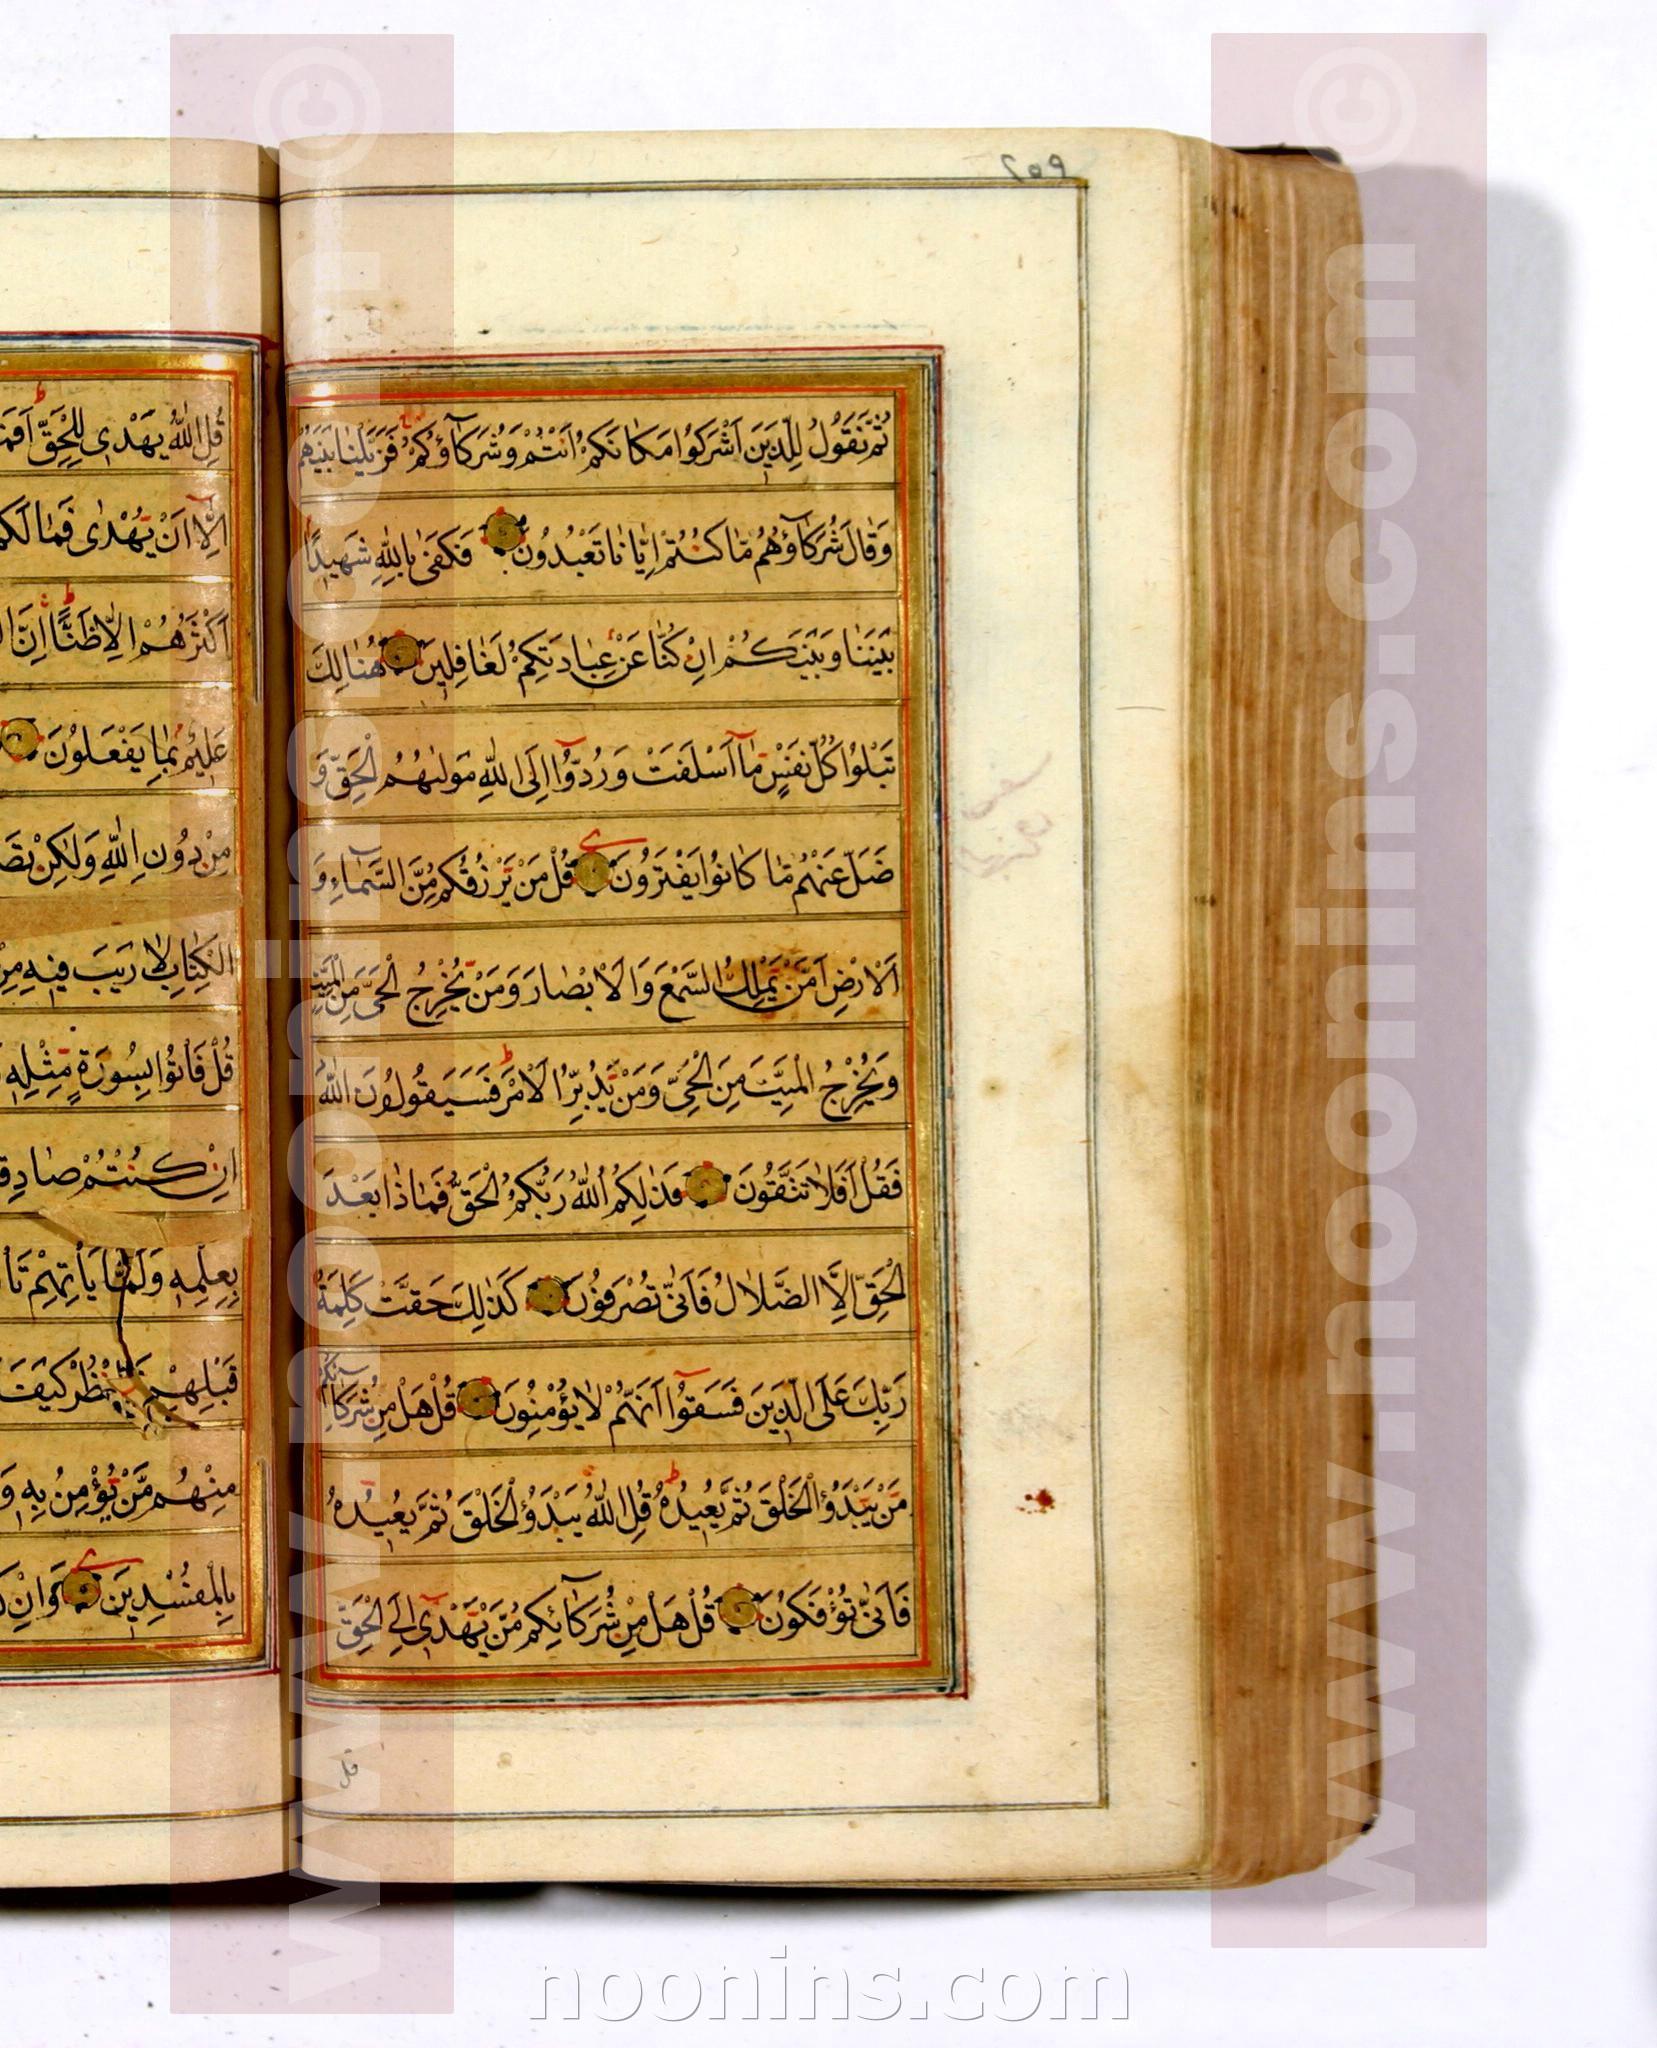 ثُمَّ نَقُولُ لِلَّذِينَ اَشْرَكُوا مَكانَكُمْ اَنْتُمْ وَشُرَكآؤُكُمْ فَزَيَّلْنا بَيْنَهُمْ
وَقالَ شُرَكآؤُهُمْ ما كُنْتُمْ اِيّانا تَعْبُدُونَ فَكَفى بِاللهِ شَهِيدًا
بَيْنَنا وَبَيْنَكُمْ اِنْ كُنّا عَنْ عِبادَتِكُمْ لَغافِلِينَ هُنالِكَ
تَبْلُوا كُلُّ نَفْسٍ مآ اَسْلَفَتْ وَرُدُّوآ اِلَى اللهِ مَوْلٰهُمُ الْحَقِّ وَ
ضَلَّ عَنْهُمْ ما كانُوا يَفْتَرُونَ قُلْ مَنْ يَرْزُقُكُمْ مِنَ السَّمآءِ وَ
الْاَرْضِ اَمَّنْ يَمْلِكُ السَّمْعَ وَالْاَبْصارَ وَمَنْ يُخْرِجُ الْحَىَّ مِنَ الْمَيِّتِ
وَيُخْرِجُ الْمَيِّتَ مِنَ الْحَىِّ وَمَنْ يُدَبِّرُ الْاَمْرَ فَسَيَقُولُونَ اللهُ
فَقُلْ اَفَلا تَتَّقُونَ فَذٰلِكُمُ اللهُ رَبُّكُمُ الْحَقُّ فَماذا بَعْدَ
الْحَقِّ اِلَّا الضَّلالُ فَاَنّٰى تُصْرَفُونَ كَذٰلِكَ حَقَّتْ كَلِمَةُ
رَبِّكَ عَلَى الَّذِينَ فَسَقُوآ اَنَّهُمْ لا يُؤْمِنُونَ قُلْ هَلْ مِنْ شُرَكآئِكُمْ
مَنْ يَبْدَؤُا الْخَلْقَ ثُمَّ يُعِيدُهُ قُلِ اللهُ يَبْدَؤُا الْخَلْقَ ثُمَّ يُعِيدُهُ
فَاَنّٰى تُؤْفَكُونَ قُلْ هَلْ مِنْ شُرَكآئِكُمْ مَنْ يَهْدِىٓ اِلَى الْحَقِّ
قل
قُلِ اللهُ يَهْدِى لِلْحَقِّ
اِلّآ اَنْ يُهْدٰى فَما لَكُمْ
اَكْثَرُهُمْ اِلّا ظَنًّا اِنَّ
عَلِيمٌ بِما يَفْعَلُونَ
مِنْ دُونِ اللهِ وَلٰكِنْ
الْكِتابِ لا رَيْبَ فِيهِ مِنْ
قُلْ فَأْتُوا بِسُورَةٍ مِثْلِهِ
اِنْ كُنْتُمْ
بِعِلْمِهِ وَلَمّا يَأْتِهِمْ
قَبْلِهِمْ كَيْفَ
مِنْهُمْ مَنْ يُؤْمِنُ بِهِ وَ
بِالْمُفْسِدِينَ وَاِنْ
www.noonins.com ©
www.noonins.com ©
noonins.com